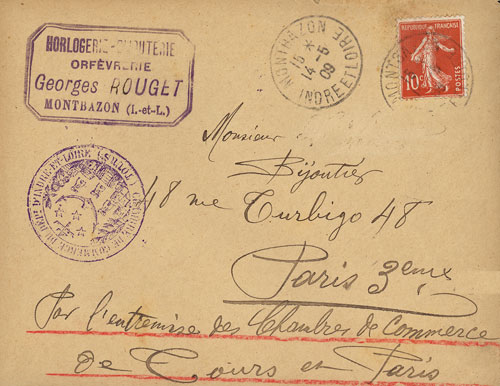 HORLOGERIE-BIJOUTERIE
ORFÈVRERIE
Georges ROUGET
MONTBAZON (I.-et-L.)
MONTBAZON
15 *
14 -5
09
INDRE ET LOIRE
REPUBLIQUE FRANÇAISE
10c
POSTES
CHAMBRE DE COMMERCE DU DÉPt D'INDRE-ET-LOIRE (TOURS)
Monsieur
Bijoutier
48 rue Turbigo 48
Paris 3eme
Par l'entremise des Chambres de Commerce
de Tours et Paris